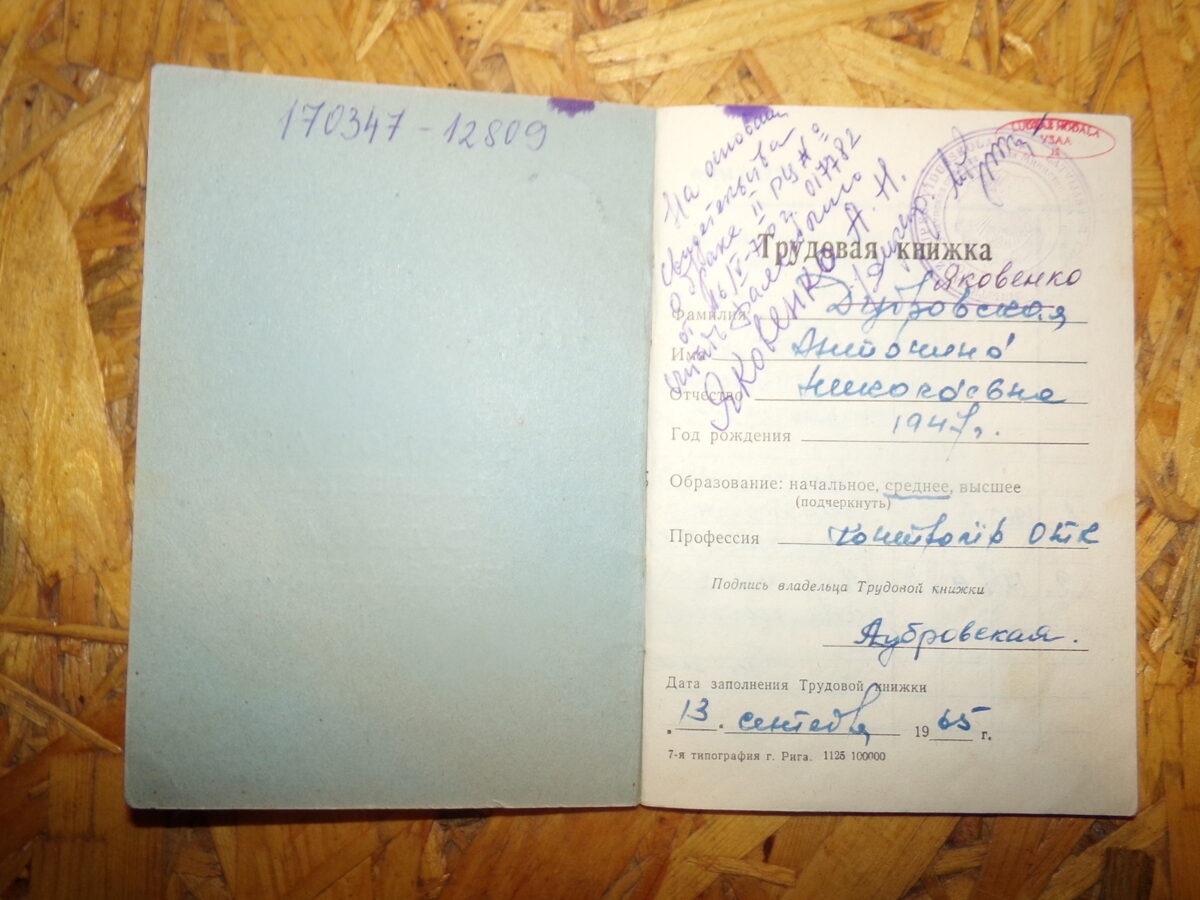 170347-12809
На основании
свидетельства
о браке II РЦ №
от 16/V-70г. 017782
читать фамилию
Яковенко А. Н.
LUDZAS NODAĻA
VSAA
Трудовая книжка
Яковенко
Фамилия Дубровская
Имя Антонина
Отчество Николаевна
Год рождения 1947г.
Образование: начальное, среднее, высшее
(подчеркнуть)
Профессия контролёр ОТК
Подпись владельца Трудовой книжки
Дубровская.
Дата заполнения Трудовой книжки
„13. сентября 1965 г.
7-я типография г. Рига. 1125 100000